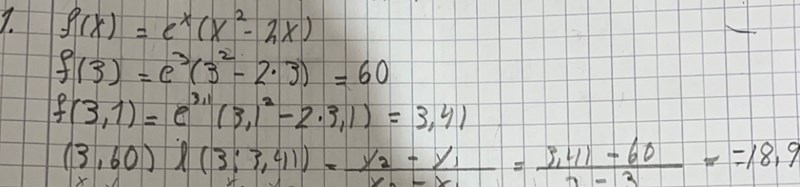 1. f(x) = e^x (x² - 2x)
f(3) = e³(3² - 2·3) = 60
f(3,1) = e^3,1 (3,1² - 2·3,1) = 3,41
(3,60) (3; 3,41) = y₂ - y₁ / x₂ - x₁ = 3,41 - 60 / - 3 = -18,9